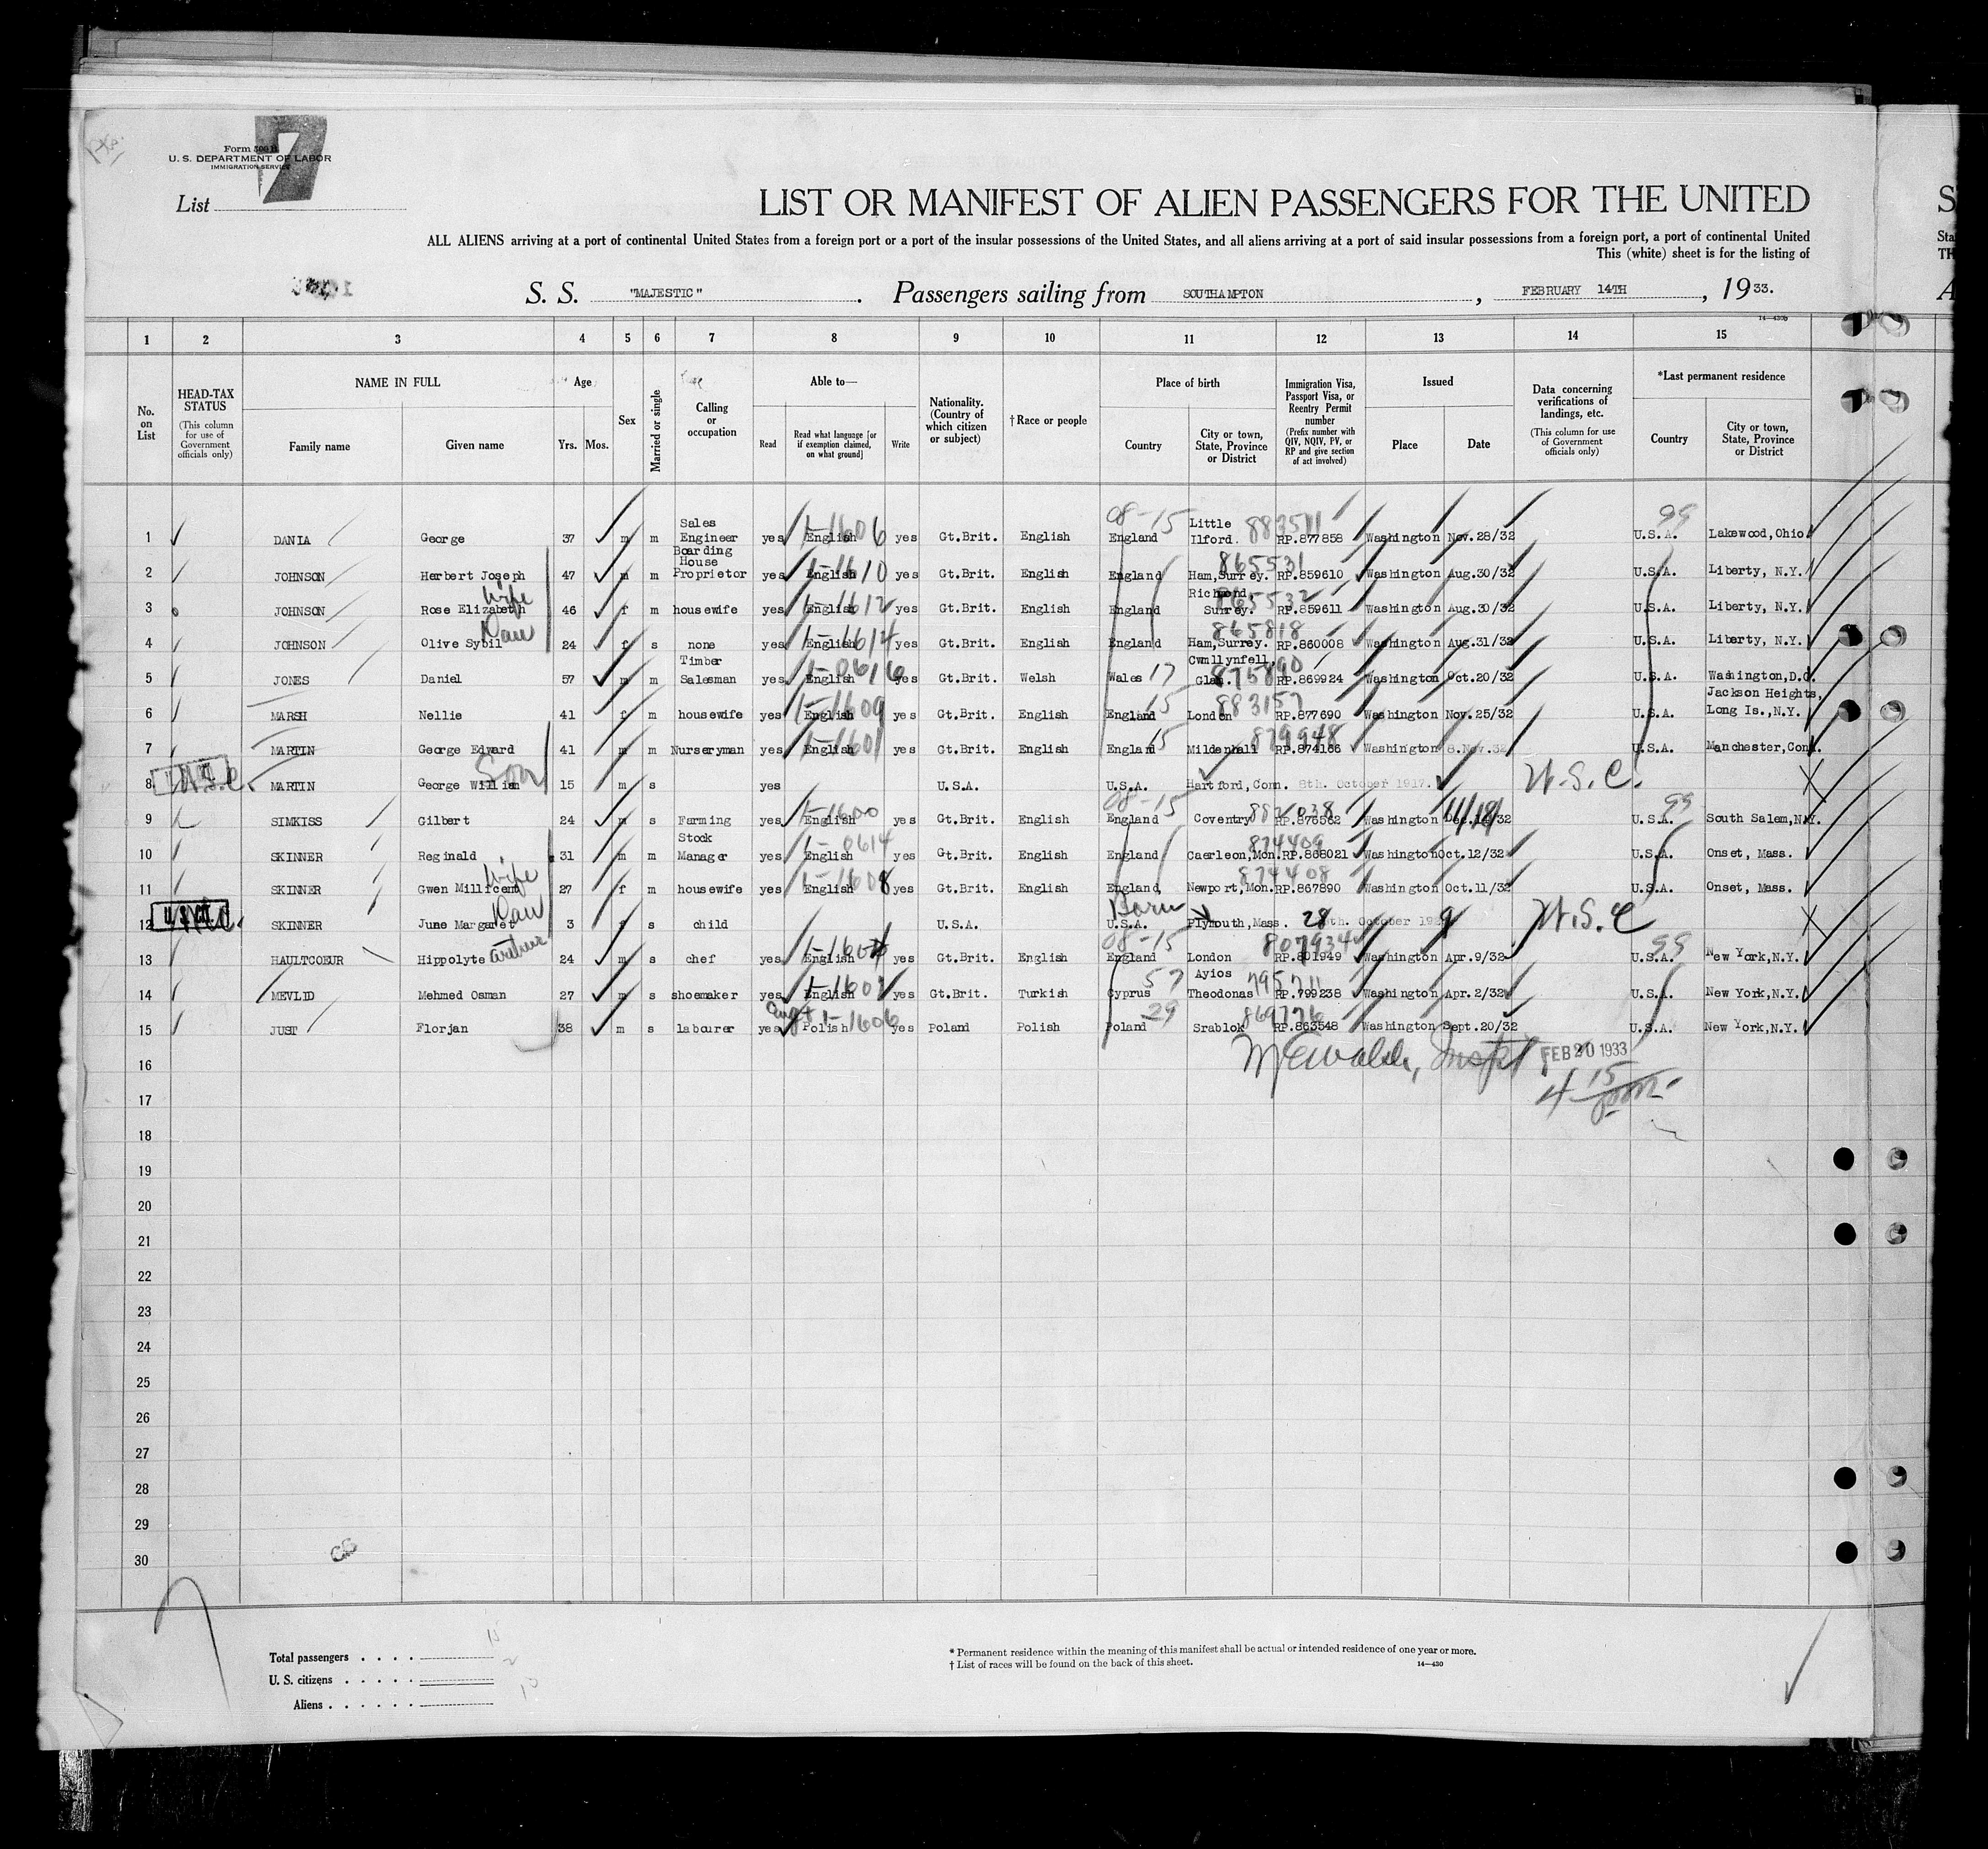 Form 500 B
U. S. DEPARTMENT OF LABOR
IMMIGRATION SERVICE
7
List
LIST OR MANIFEST OF ALIEN PASSENGERS FOR THE UNITED
ALL ALIENS arriving at a port of continental United States from a foreign port or a port of the insular possessions of the United States, and all aliens arriving at a port of said insular possessions from a foreign port, a port of continental United
This (white) sheet is for the listing of
S. S. "MAJESTIC" . Passengers sailing from SOUTHAMPTON , FEBRUARY 14TH , 1933.
1 2 3 4 5 6 7 8 9 10 11 12 13 14 15
No. on List
HEAD-TAX STATUS (This column for use of Government officials only)
NAME IN FULL Family name Given name
Age Yrs. Mos.
Sex
Married or single
Calling or occupation
Able to— Read Read what language [or if exemption claimed, on what ground] Write
Nationality. (Country of which citizen or subject)
† Race or people
Place of birth Country City or town, State, Province or District
Immigration Visa, Passport Visa, or Reentry Permit number (Prefix number with QIV, NQIV, PV, or RP and give section of act involved)
Issued Place Date
Data concerning verifications of landings, etc. (This column for use of Government officials only)
*Last permanent residence Country City or town, State, Province or District
1 DANIA George 37 m m Sales Engineer yes English 1-1606 yes Gt.Brit. English 08-15 England Little Ilford. 883511 RP.877858 Washington Nov.28/32 99 U.S.A. Lakewood, Ohio
2 JOHNSON Herbert Joseph 47 m m Boarding House Proprietor yes English 1-1610 yes Gt.Brit. English England Ham, Surrey. 865531 RP.859610 Washington Aug.30/32 U.S.A. Liberty, N.Y.
3 JOHNSON Rose Elizabeth Wife 46 f m housewife yes English 1-1612 yes Gt.Brit. English England Richmond, Surrey. 865532 RP.859611 Washington Aug.30/32 U.S.A. Liberty, N.Y.
4 JOHNSON Olive Sybil Dau 24 f s none yes English 1-1614 yes Gt.Brit. English England Ham, Surrey. 865818 RP.860008 Washington Aug.31/32 U.S.A. Liberty, N.Y.
5 JONES Daniel 57 m m Timber Salesman yes English 1-0616 yes Gt.Brit. Welsh Wales 17 Cwmllynfell, Glam. 875890 RP.869924 Washington Oct.20/32 U.S.A. Washington, D.C.
6 MARSH Nellie 41 f m housewife yes English 1-1609 yes Gt.Brit. English England 15 London 883157 RP.877690 Washington Nov.25/32 U.S.A. Jackson Heights, Long Is., N.Y.
7 MARTIN George Edward 41 m m Nurseryman yes English 1-1601 yes Gt.Brit. English England 15 Mildenhall 879948 RP.874166 Washington 8.Nov.32 U.S.A. Manchester, Conn.
8 U.S.C. MARTIN George William Son 15 m s yes U.S.A. U.S.A. Hartford, Conn. 8th. October 1917. U.S.C.
9 SIMKISS Gilbert 24 m s Farming yes English 1-1600 yes Gt.Brit. English 08-15 England Coventry 882038 RP.876562 Washington 11/18/32 99 U.S.A. South Salem, N.Y.
10 SKINNER Reginald 31 m m Stock Manager yes English 1-0614 yes Gt.Brit. English England Caerleon, Mon. 874409 RP.868021 Washington Oct.12/32 U.S.A. Onset, Mass.
11 SKINNER Gwen Millicent Wife 27 f m housewife yes English 1-1608 yes Gt.Brit. English England Newport, Mon. 874408 RP.867890 Washington Oct.11/32 U.S.A. Onset, Mass.
12 SKINNER June Margaret Dau 3 f s child U.S.A. Born U.S.A. Plymouth, Mass. 28th. October 1929 U.S.C
13 HAULTCOEUR Hippolyte Arthur 24 m s chef yes English yes Gt.Brit. English 08-15 England London 807934 RP.801949 Washington Apr.9/32 99 U.S.A. New York, N.Y.
14 MEVLID Mehmed Osman 27 m s shoemaker yes English yes Gt.Brit. Turkish Cyprus 57 Ayios Theodonas 795711 RP.799238 Washington Apr.2/32 U.S.A. New York, N.Y.
15 JUST Florjan 38 m s labourer yes Polish 1-1606 yes Poland Polish Poland 29 Srablok 869776 RP.863548 Washington Sept.20/32 U.S.A. New York, N.Y.
16 FEB 20 1933
17 4 15 pm
18
19
20
21
22
23
24
25
26
27
28
29
30
Total passengers . . . . 15
U. S. citizens . . . . . 2
Aliens . . . . . .
* Permanent residence within the meaning of this manifest shall be actual or intended residence of one year or more.
† List of races will be found on the back of this sheet.
14—430